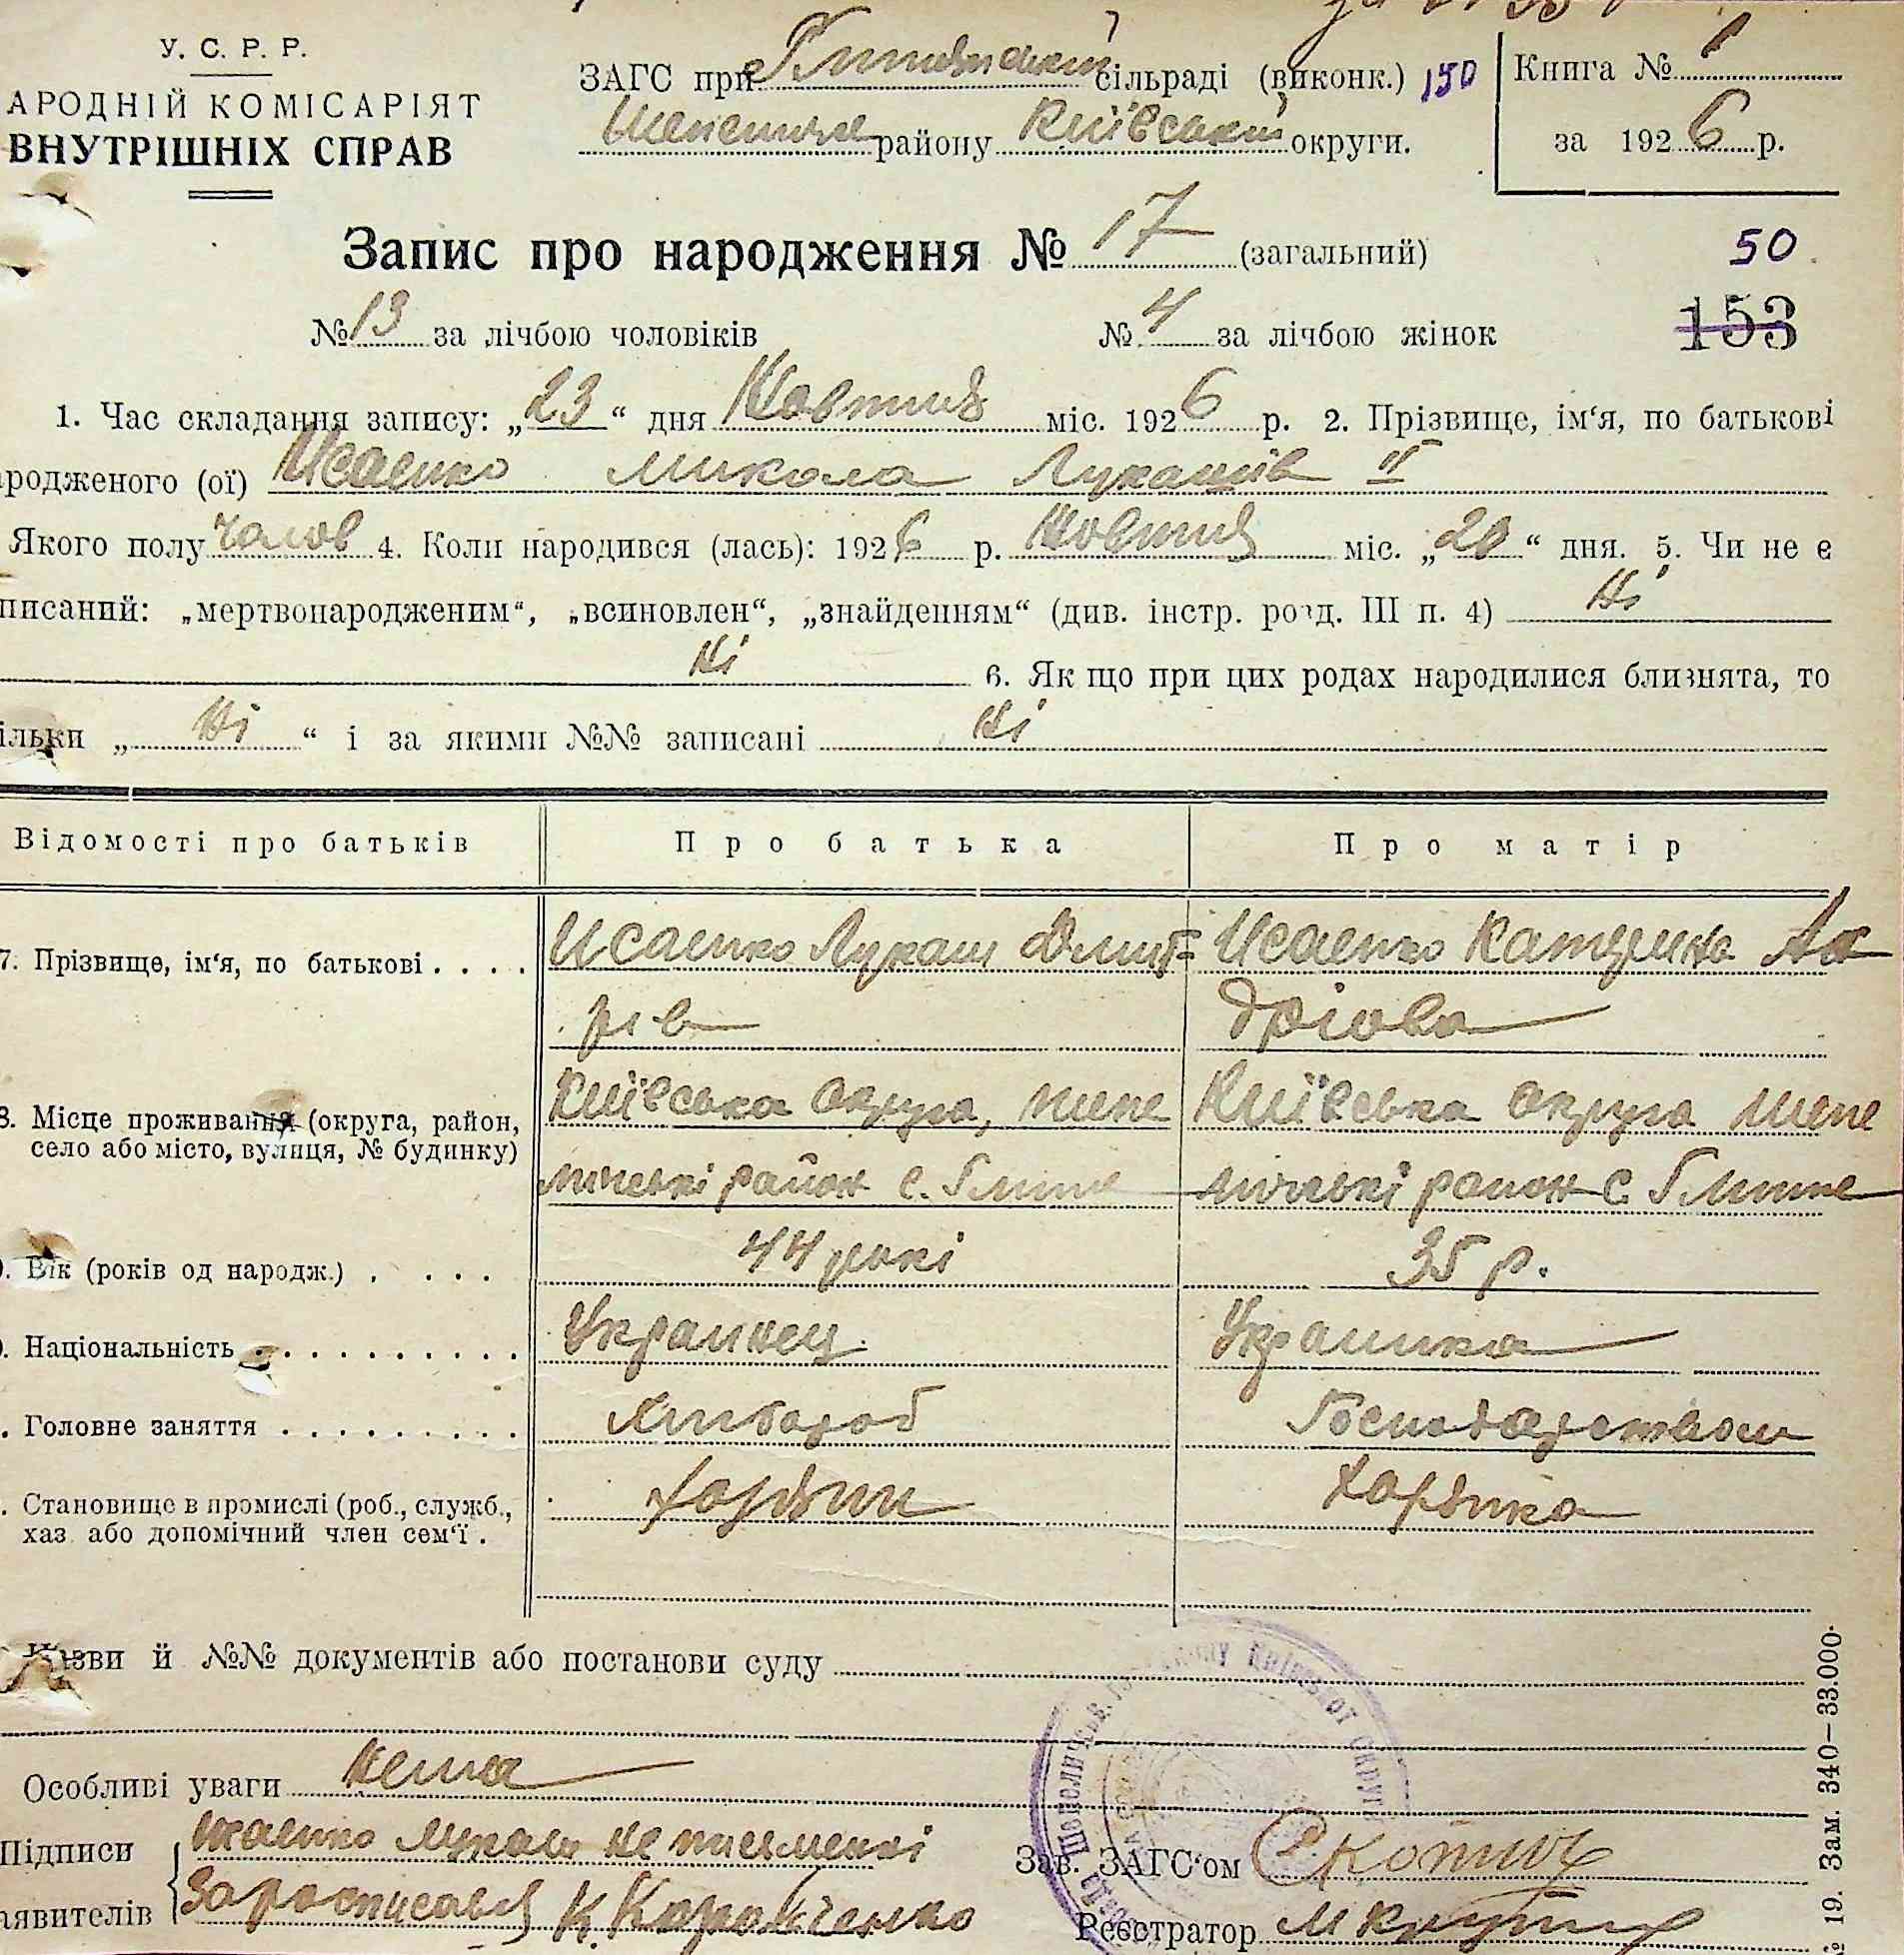 У. С. Р. Р.
АРОДНІЙ КОМІСАРІЯТ
ВНУТРІШНІХ СПРАВ
ЗАГС при сільраді (виконк.) 150
району Київський округи.
Книга № 1
за 1926 р.
Запис про народження № 17 (загальний)
50
№ 13 за лічбою чоловіків № 4 за лічбою жінок
153
1. Час складання запису: „23“ дня Жовтня міс. 1926 р. 2. Прізвище, ім‘я, по батькові
ародженого (ої) Исаенко Микола Лукашів II
Якого полу Чолов 4. Коли народився (лась): 1926 р. Жовтня міс. „20“ дня. 5. Чи не є
писаний: „мертвонародженим“, „всиновлен“, „знайденням“ (див. інстр. розд. III п. 4) Ні
Ні 6. Як що при цих родах народилися близнята, то
ільки „Ні“ і за якими №№ записані Ні
Відомості про батьків Про батька Про матір
7. Прізвище, ім‘я, по батькові . . . . Исаенко Лукаш Дмит= Исаенко Катерина Ан
рів дріова
8. Місце проживання (округа, район, село або місто, вулиця, № будинку) Київська округа, шепе Київська округа шепе
лічські район с. Глинне лічські район с. Глинне
. Вік (років од народж.) . . . . 44 рокі 35 р.
. Національність . . . . . . . . . . Украинец Украинка
. Головне заняття . . . . . . . . . Хлибороб Господарством
. Становище в промислі (роб., служб., хаз. або допомічний член сем‘ї .
Назви й №№ документів або постанови суду
Особливі уваги нема
Підписи Исаенко Лукаш не письменні
аявителів Заросписався К. Коромченко
Зав. ЗАГС‘ом
Реєстратор
19. Зам. 340—33.000.